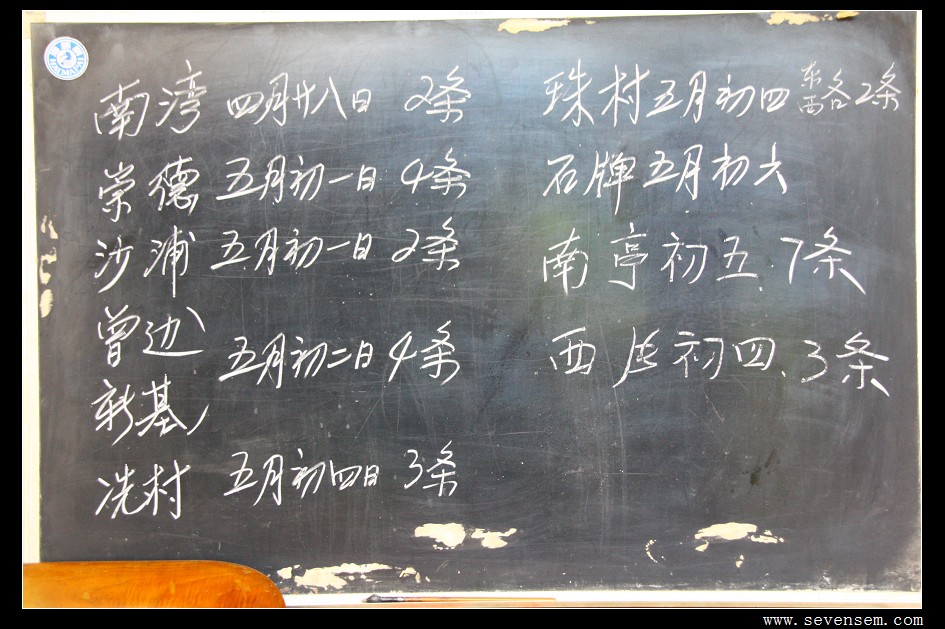 南湾 四月廿八日 2条
崇德 五月初一日 4条
沙浦 五月初一日 2条
曾边
五月初二日 4条
新基
冼村 五月初四日 3条
珠村五月初四 东西各2条
石牌五月初六
南亭初五.7条
西 初四.3条
www.sevensem.com